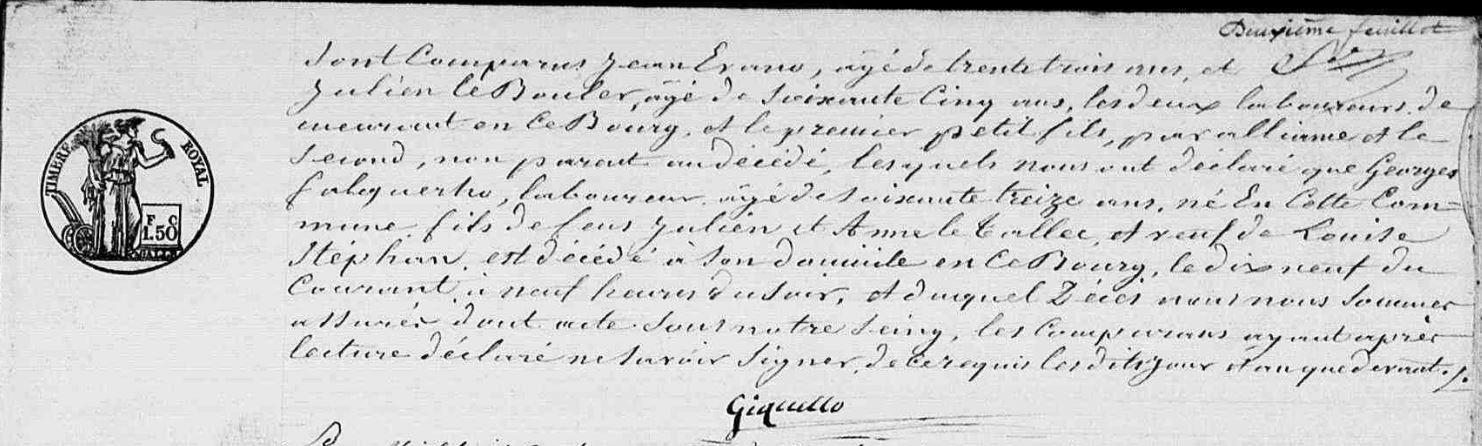 Deuxième feuillet
Sont Comparus Jean Evano, âgé de trente trois ans, et
Julien le Bouler, âgé de Soixante Cinq ans, les deux laboureurs de
meurant en Ce Bourg, et le premier petit fils, par alliance et le
Second, non parent au décédé, lesquels nous ont déclaré que Georges
falquerho, laboureur, âgé de Soixante treize ans, né En Cette Com-
mune, fils de feus Julien et Anne le tallec, et veuf de Louise
Stéphan, est décédé à Son domicile en Ce Bourg, le dix neuf du
Courant, à neuf heures du Soir, et duquel Décès nous nous Sommes
assurés dont acte Sous notre Seing, les Comparans ayant après
lecture déclaré ne Savoir Signer, de ce requis les dits jour et an que devant.
Giquello
TIMBRE ROYAL
F C
1.50